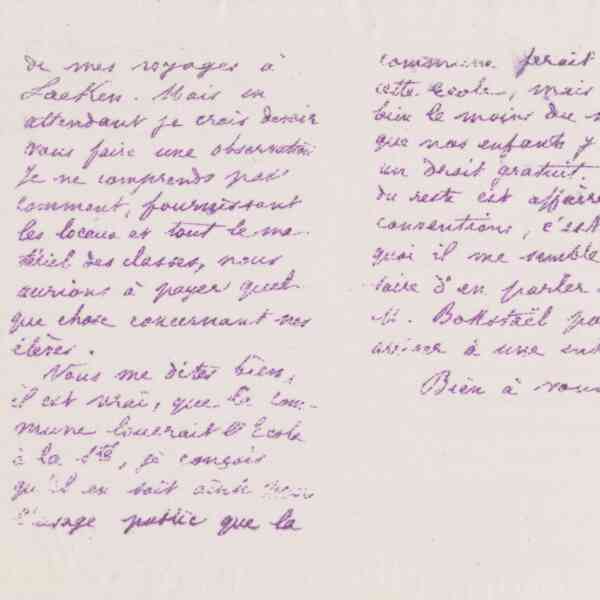 de mes voyages à
Laeken. Mais en
attendant je crois devoir
vous faire une observation
Je ne comprends pas
comment, fournissant
les locaux et tout le ma-
tériel des classes, nous
aurions à payer quel-
que chose concernant nos
élèves.
Vous me dites bien,
il est vrai, que la com-
mune louerait l'Ecole
à la Sté, je conçois
qu'il en soit ainsi
l'usage public que la
commune ferait
cette Ecole, mais
bien le moins du
que nos enfants y
un droit gratuit.
du reste est affaire
conventions, c'est
quoi il me semble
d'en parler
M. Bokstaël
arriver à une
Bien à vous